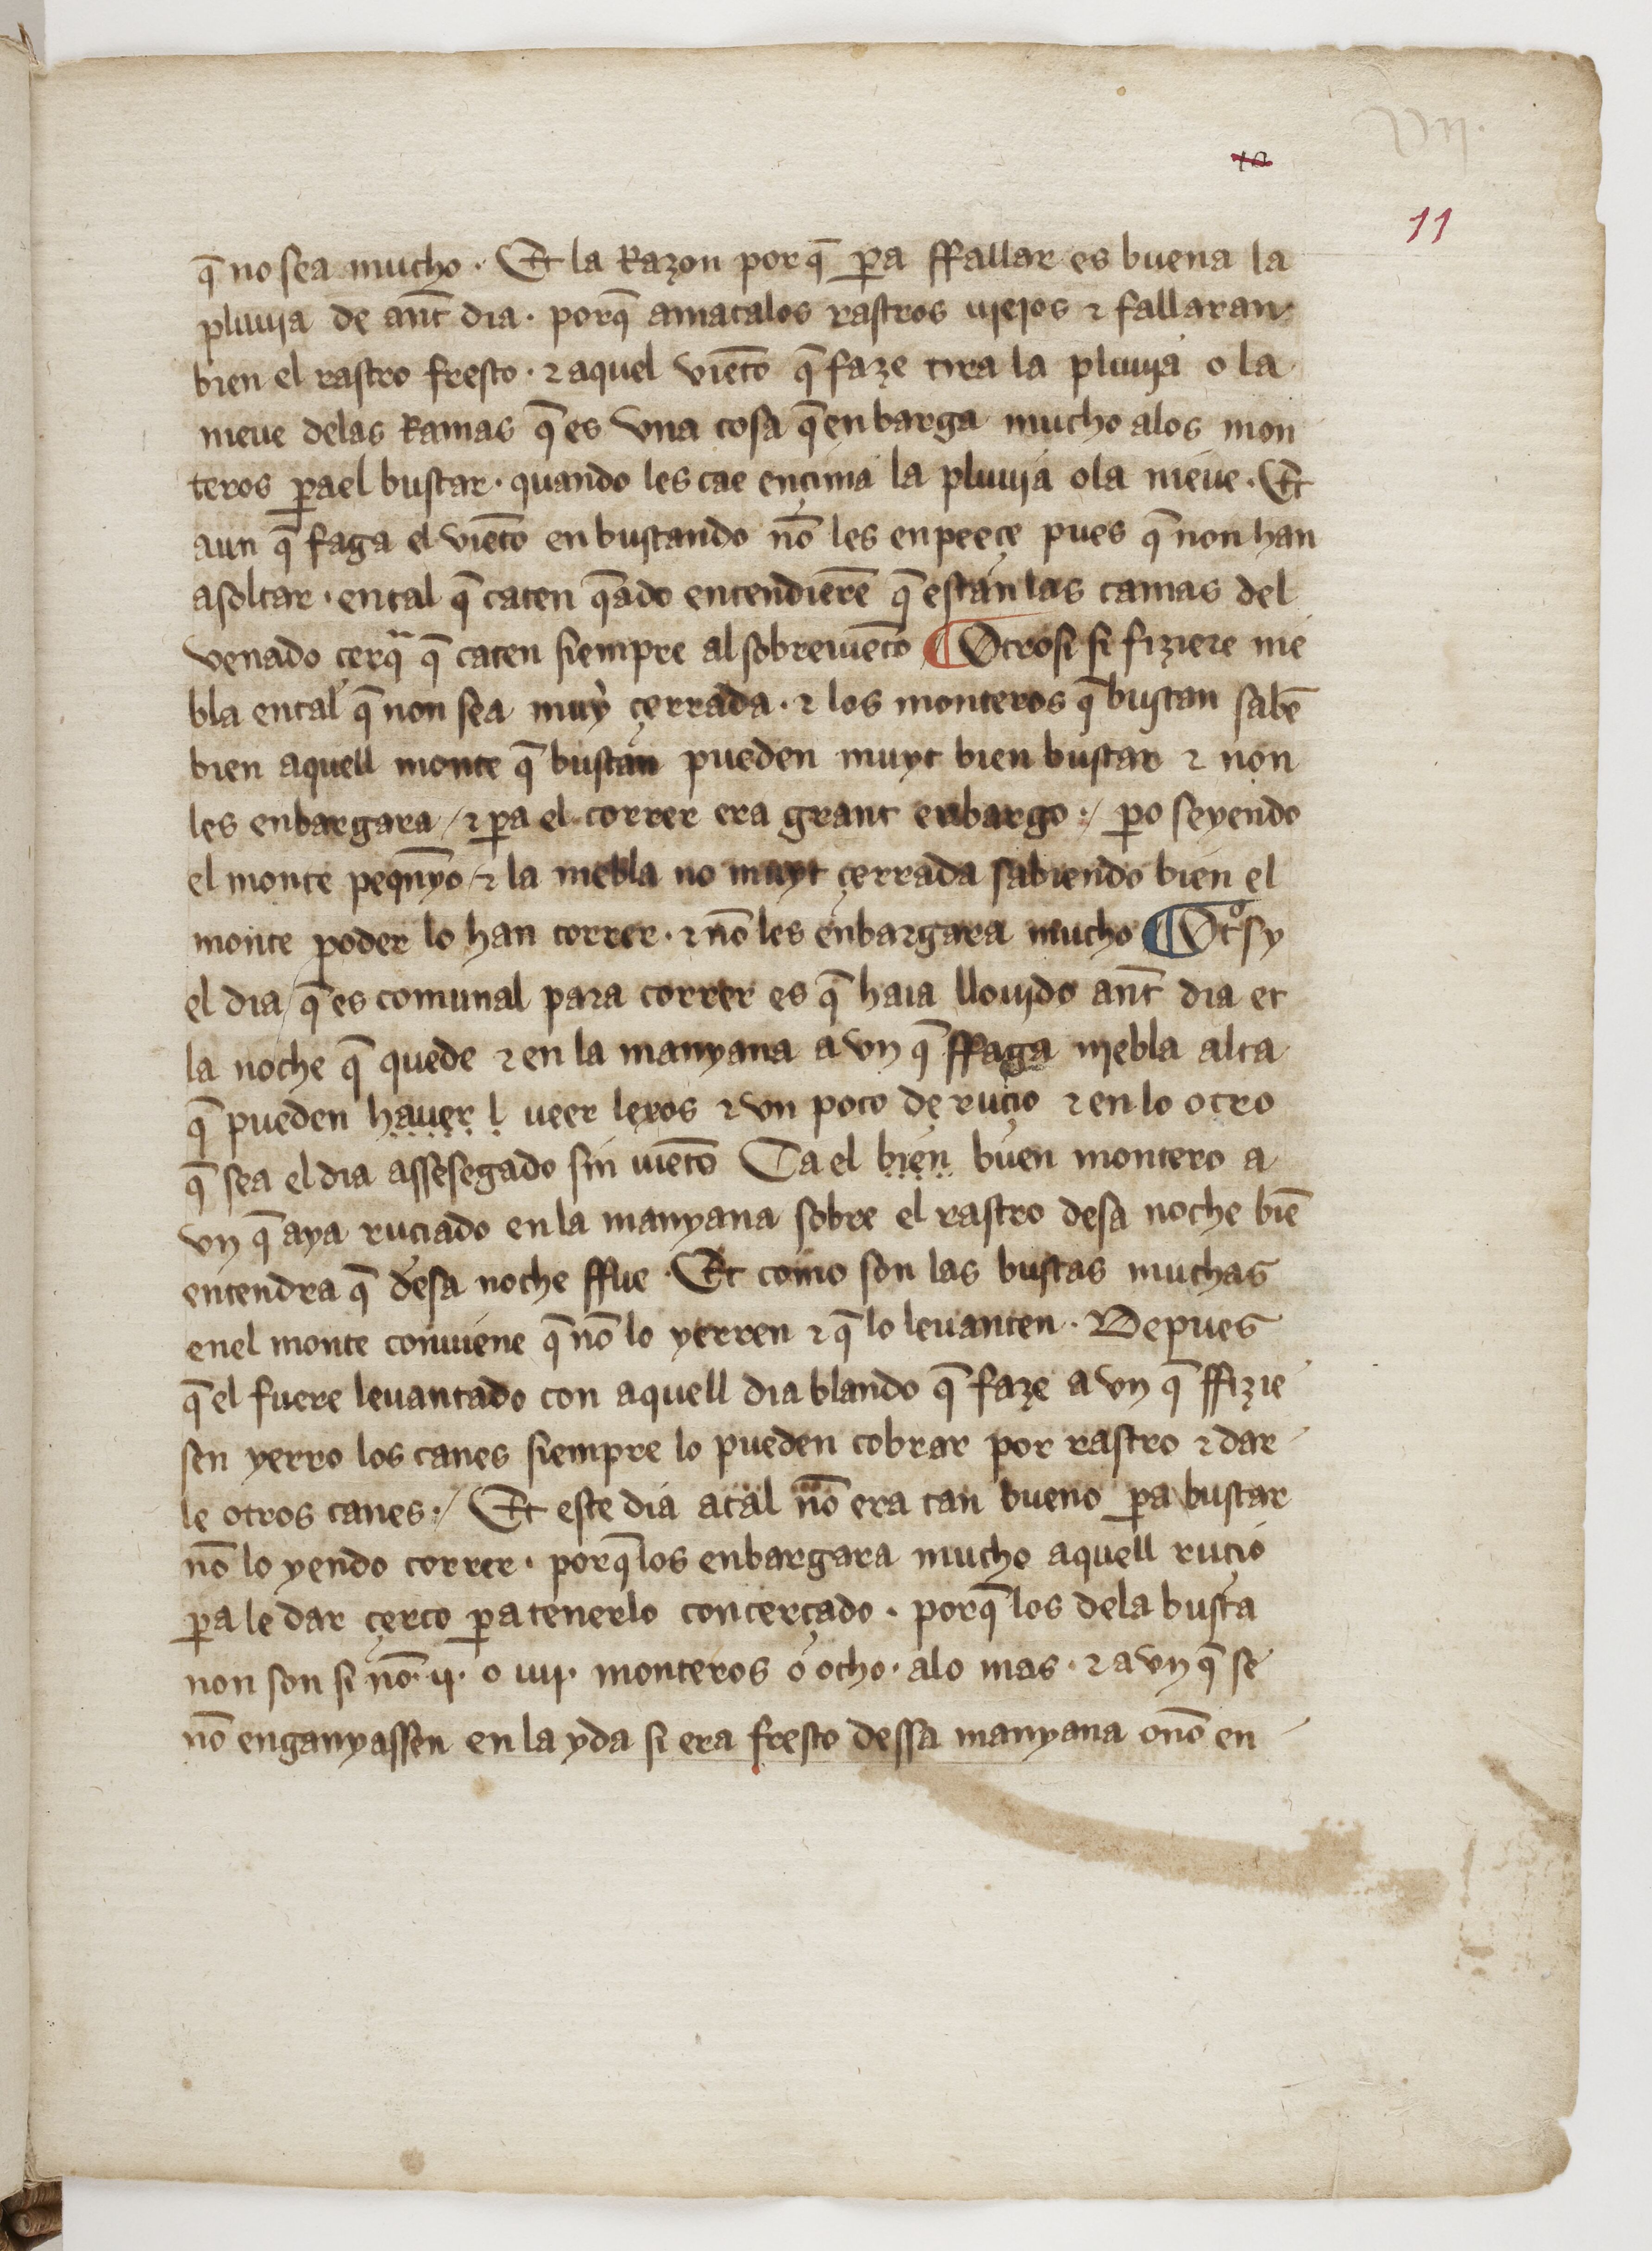 vij.
10
11
q̄ no sea mucho · Et la Razon porq̄ ꝑa ffallar es buena la
pluuia de ant̄ dia · porq̄ amatalos rastros uiejos ⁊ fallaran
bien el rastro fresco · ⁊ aquel viēto q̄ faze tira la pluuja o la
nieue delas Ramas q̄ es vna cosa q̄ enbarga mucho alos mon
teros ꝑael buscar · quando les cae ençima la pluuja ola nieue · Et
aun q̄ faga el viēto en buscando nō les enpeeçe pues q̄ non han
asoltar · ental q̄ caten q̄ado entendierē q̄ estan las camas del
venado çerq̄ q̄ caten siempre al sobreuiēto ¶ Otrosi si fiziere nie
bla ental q̄ non sea muy çerrada · ⁊ los monteros q̄ buscan sabē
bien aquell monte q̄ buscan pueden muyt bien buscar ⁊ non
les enbargara / ⁊ ꝑa el correr era grant enbargo ·/ ꝑo seyendo
el monte peqn̄yo / ⁊ la niebla no muyt çerrada sabiendo bien el
monte poder lo han correr · ⁊ nō les enbargara mucho ¶ Otºsy
el dia / q̄ es comunal para correr es q̄ haia llouido ant̄ dia et
la noche q̄ quede ⁊ en la manyana a vn q̄ ffaga niebla alta
q̄ pueden hauer l ueer lexos ⁊ vn poco de ruçio ⁊ en lo otro
q̄ sea el dia assesegado sin uiēto Ca el bien buen montero a
vn q̄ aya ruciado en la manyana sobre el rastro desa noche biē
entendra q̄ desa noche ffue · Et como son las buscas muchas
enel monte conuiene q̄ nō lo yerren ⁊ q̄ lo leuanten · Depues
q̄ el fuere leuantado con aquell dia blando q̄ faze a vn q̄ ffizie
sen yerro los canes siempre lo pueden cobrar por rastro ⁊ dar
le otros canes ·/ Et este dia atal nō era tan bueno ꝑa buscar
nō lo yendo correr · porq̄ los enbargara mucho aquell rucio
ꝑa le dar çerco ꝑa tenerlo conçertado · porq̄ los dela busca
non son si nō · ij · o iiij · monteros o ocho · alo mas · ⁊ a vn q̄ se
nō enganyassen en la yda si era fresco dessa manyana o nō en